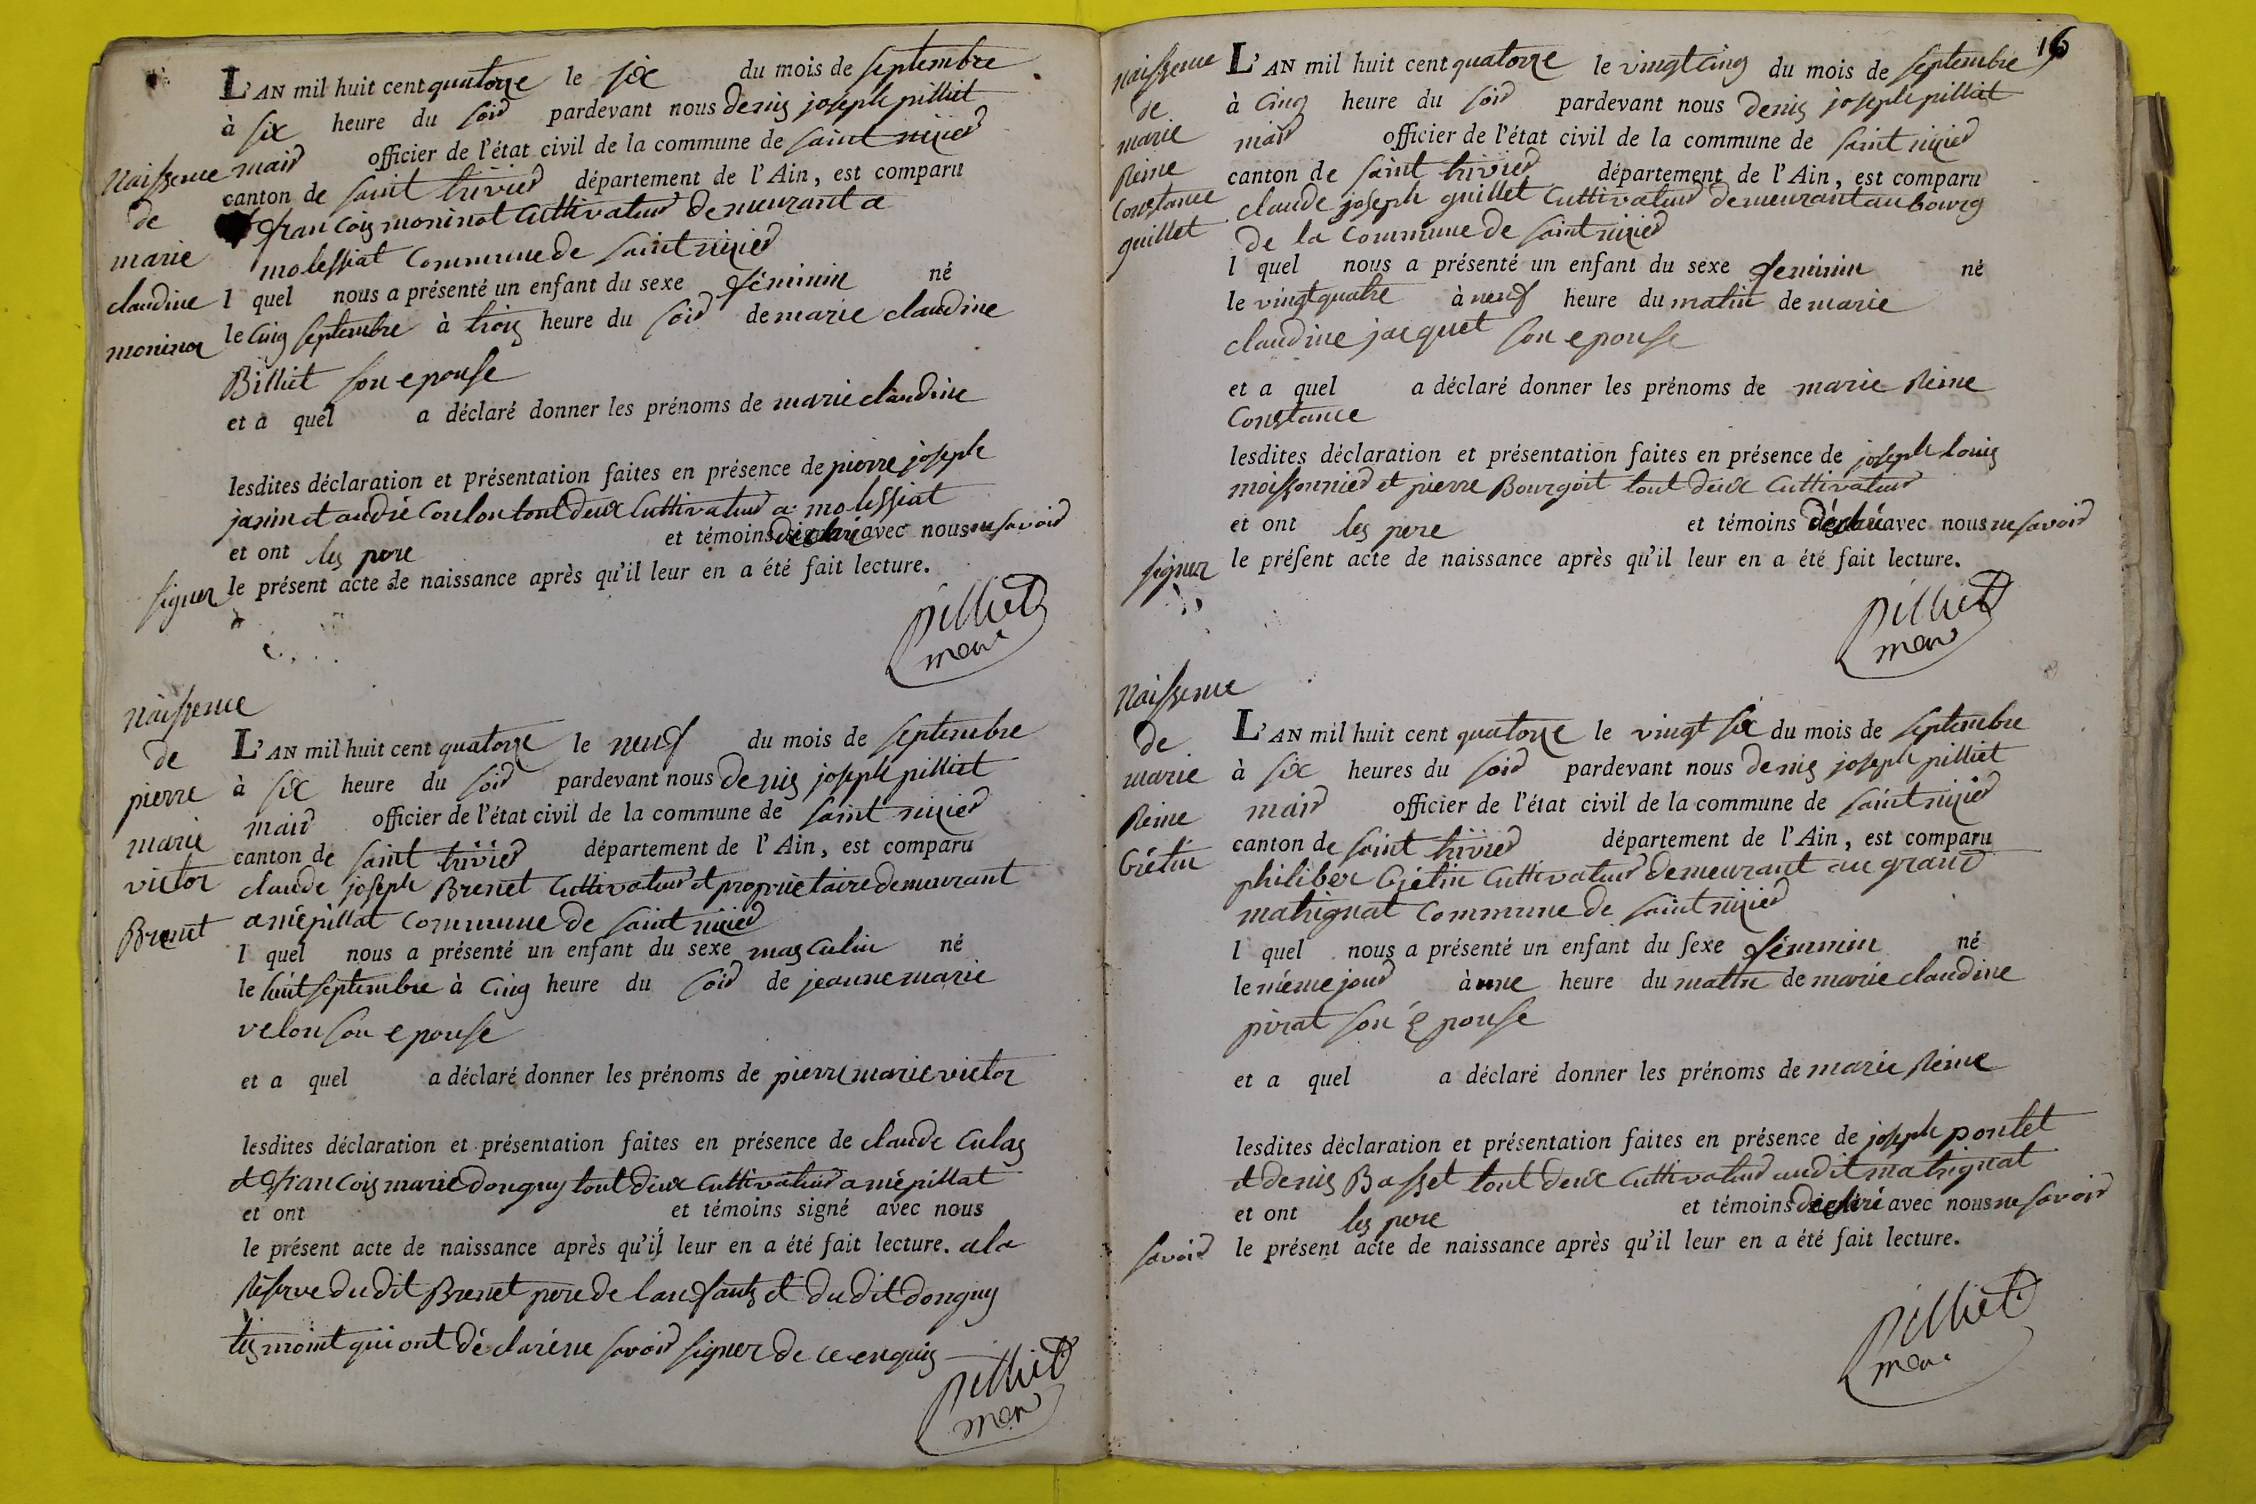 L'AN mil huit cent quatorze le six du mois de septembre
à six heure du soir pardevant nous denis joseph pilliat
maire officier de l'état civil de la commune de saint nizier
canton de saint trivier département de l'Ain, est comparu
françois moninot Cultivateur demeurant a
molessiat Commune de saint nizier
l quel nous a présenté un enfant du sexe féminin né
le cinq septembre à trois heure du soir de marie claudine
Billiet son epouse
et a quel a déclaré donner les prénoms de marie claudine
lesdites déclaration et présentation faites en présence de pierre joseph
janin et andré Coulon tout deux Cultivateur a molessiat
et ont les pere et témoins déclaré avec nous ne savoir
signer le présent acte de naissance après qu'il leur en a été fait lecture.
pilliat
maire
Naissence
de
marie
claudine
moninot
L'AN mil huit cent quatorze le neuf du mois de septembre
à six heure du soir pardevant nous denis joseph pilliat
maire officier de l'état civil de la commune de saint nizier
canton de saint trivier département de l'Ain, est comparu
claude joseph Brenet Cultivateur et proprietaire demeurant
a mépillat Commune de saint nizier
l quel nous a présenté un enfant du sexe masculin né
le huit septembre à cinq heure du soir de jeanne marie
velon son epouse
et a quel a déclaré donner les prénoms de pierre marie victor
lesdites déclaration et présentation faites en présence de claude Culas
et françois marie donguy tout deux Cultivateur a mépillat
et ont et témoins signé avec nous
le présent acte de naissance après qu'il leur en a été fait lecture. a la
Réserve du dit Brenet pere de lanfants et du dit donguy
tesmoint qui ont déclaré ne savoir signer de ce enquis
pilliat
maire
Naissence
de
pierre
marie
victor
Brenet
16
L'AN mil huit cent quatorze le vingt cinq du mois de septembre
à cinq heure du soir pardevant nous denis joseph pilliat
maire officier de l'état civil de la commune de saint nizier
canton de saint trivier département de l'Ain, est comparu
claude joseph guillet Cultivateur demeurant au bourg
de la Commune de saint nizier
l quel nous a présenté un enfant du sexe feminin né
le vingt quatre à neuf heure du matin de marie
claudine jacquet son epouse
et a quel a déclaré donner les prénoms de marie Reine
Constance
lesdites déclaration et présentation faites en présence de joseph louis
moissonnier et pierre Bourgoit tout deux Cultivateur
et ont les pere et témoins déclaré avec nous ne savoir
signer le présent acte de naissance après qu'il leur en a été fait lecture.
pilliat
maire
Naissence
de
marie
Reine
Constance
guillet
L'AN mil huit cent quatorze le vingt six du mois de septembre
à six heures du soir pardevant nous denis joseph pilliat
maire officier de l'état civil de la commune de saint nizier
canton de saint trivier département de l'Ain, est comparu
philiber Grétin Cultivateur demeurant au grand
matrignat Commune de saint nizier
l quel nous a présenté un enfant du sexe féminin né
le méme jour à une heure du matin de marie claudine
pirat son épouse
et a quel a déclaré donner les prénoms de marie Reine
lesdites déclaration et présentation faites en présence de joseph pontet
et denis Basset tout deux Cultivateur audit matrignat
et ont les pere et témoins déclaré avec nous ne savoir
savoir le présent acte de naissance après qu'il leur en a été fait lecture.
pilliat
maire
Naissence
de
marie
Reine
Grétin